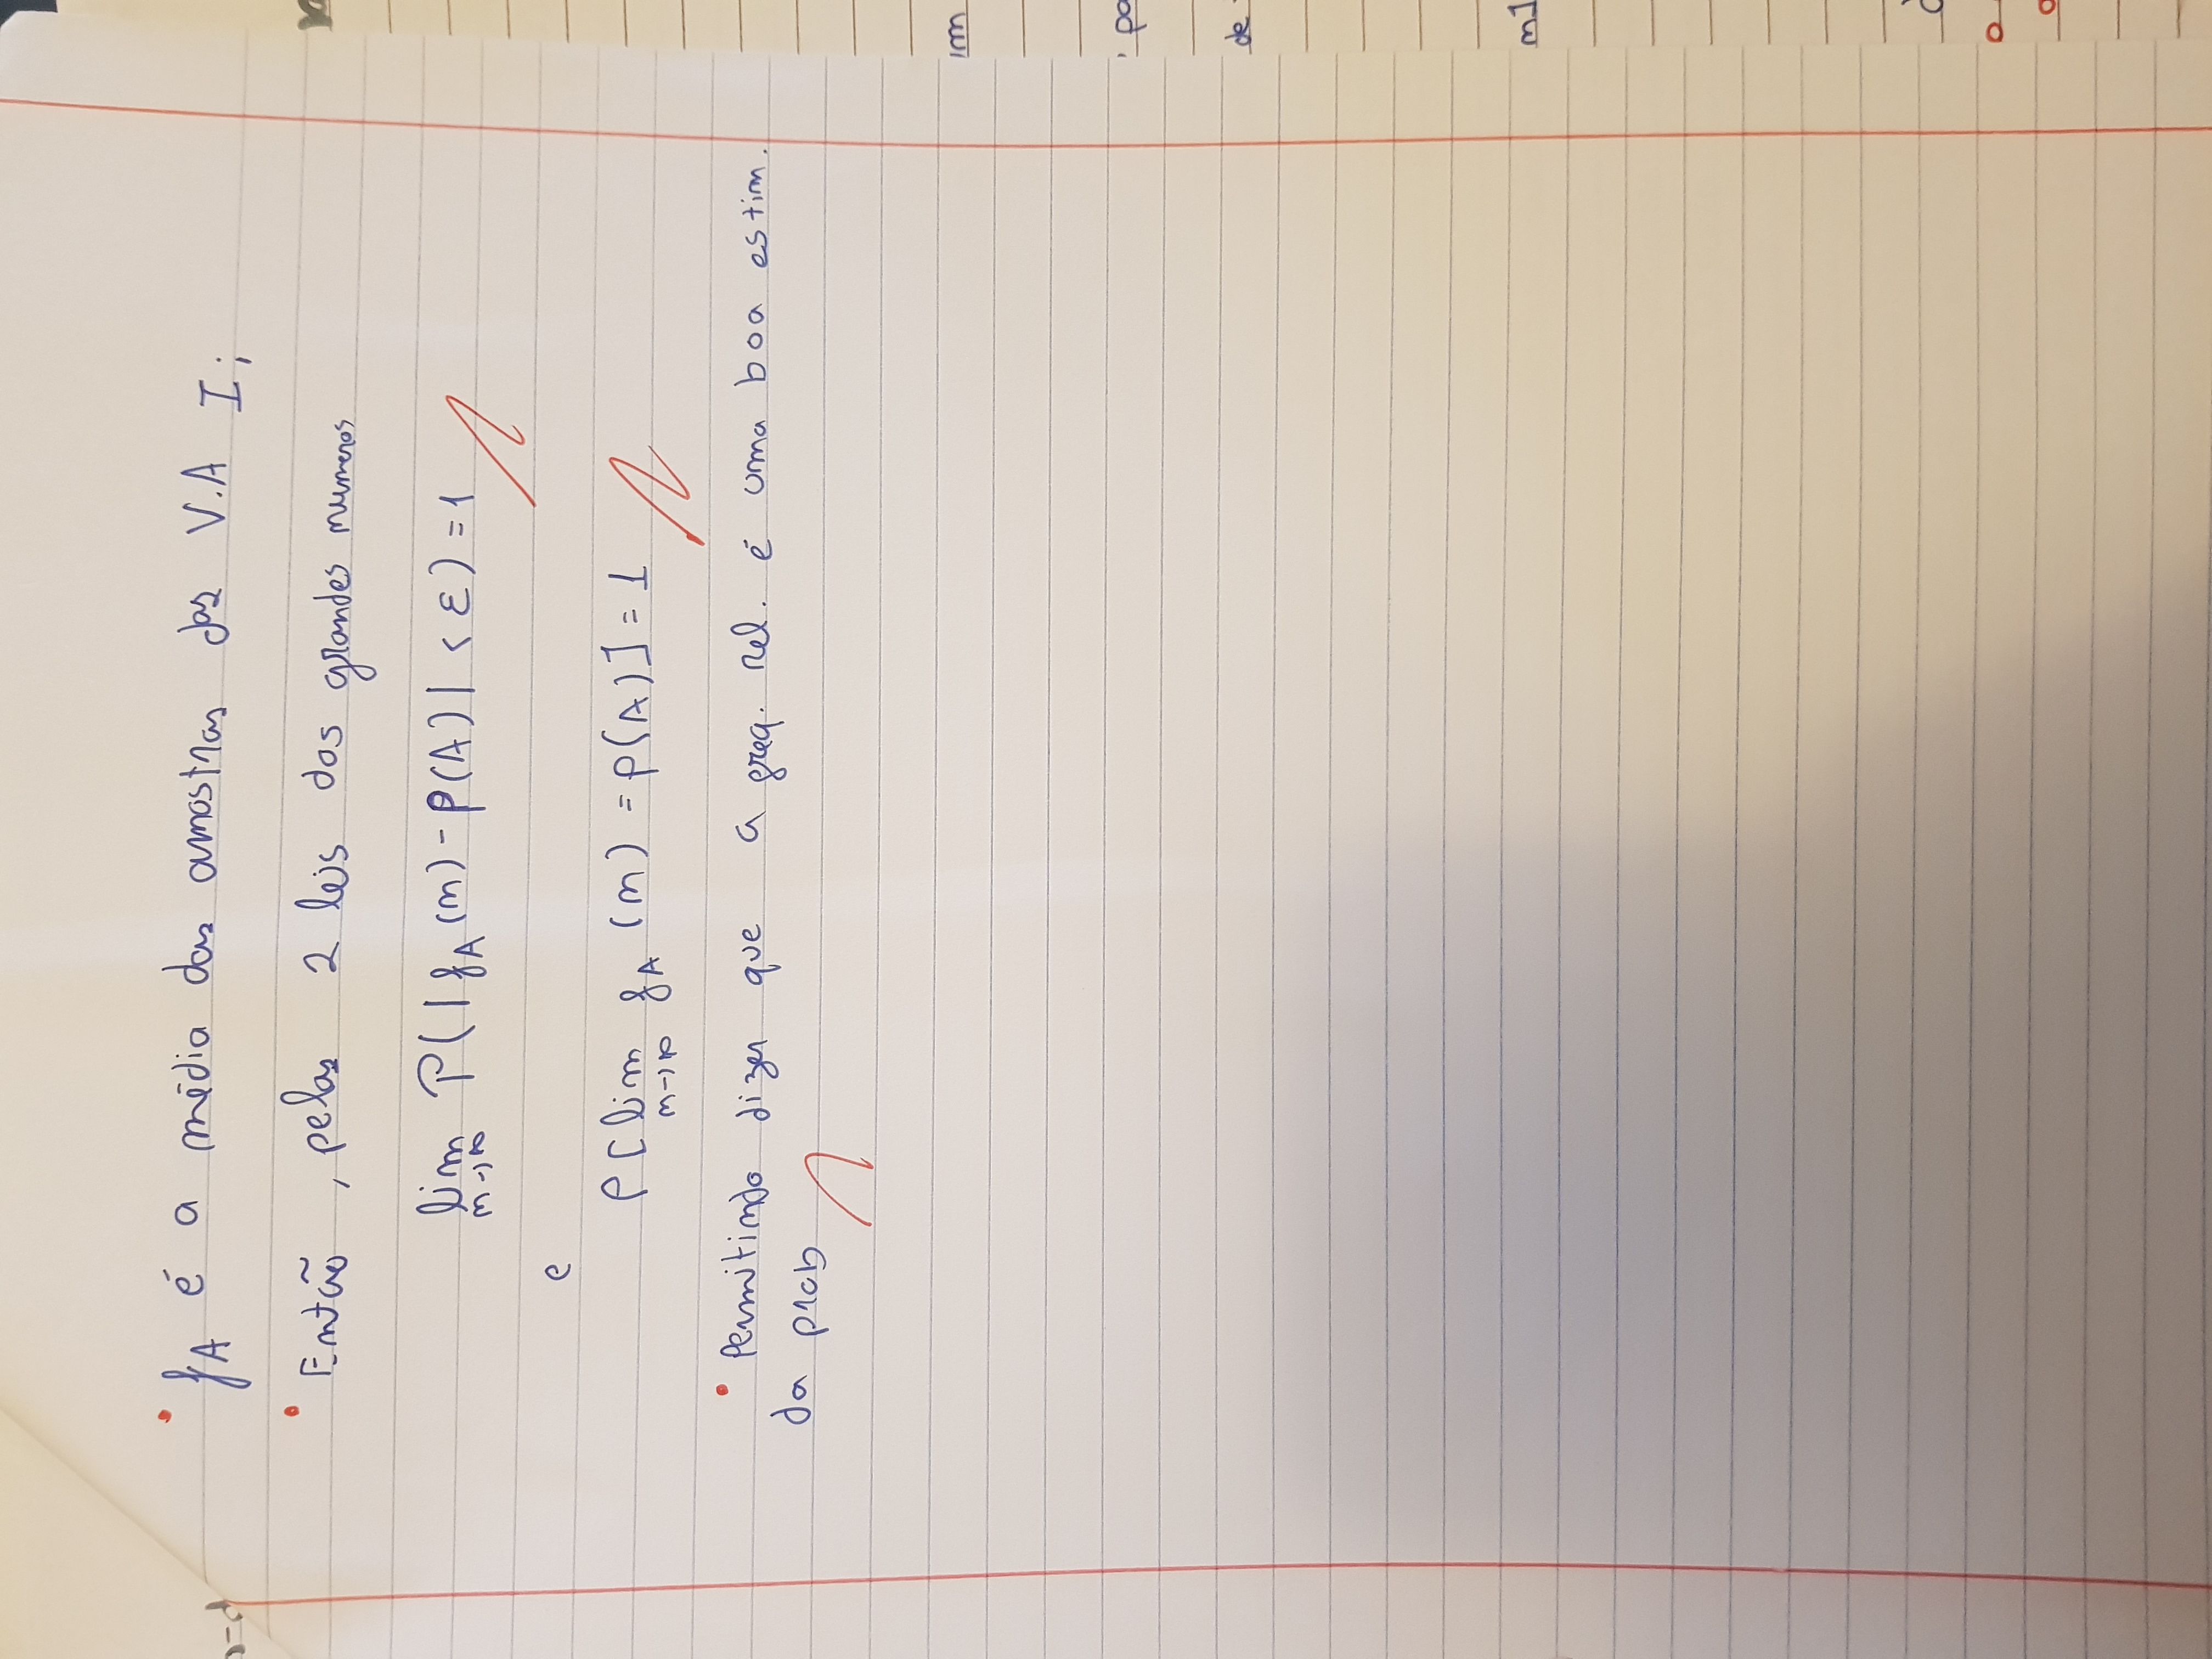 • fA é a média das amostras das V.A Ij
• Então, pelas 2 leis dos grandes numeros
lim P(|fA(n) - P(A)| < ε) = 1
n→∞
e
P[lim fA(n) = P(A)] = 1
n→∞
• Permitindo dizer que a freq. rel. é uma boa estim.
da prob
im
po
de